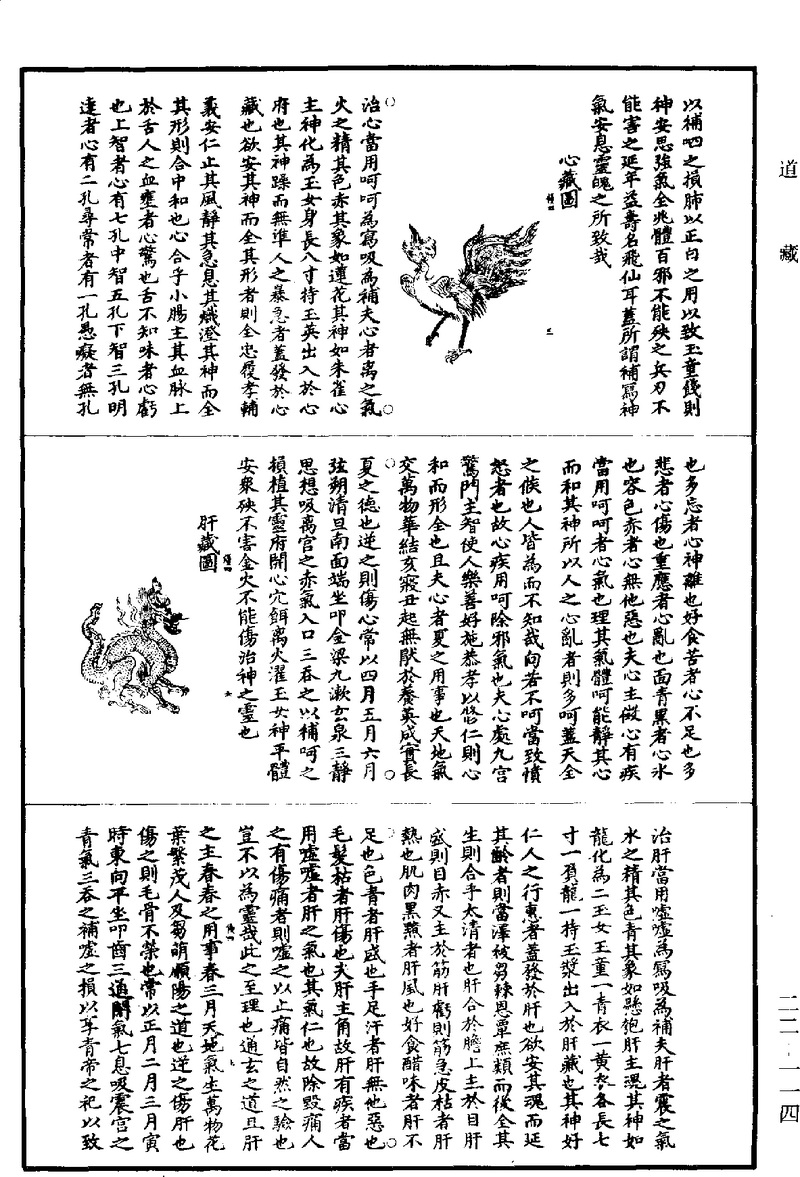 道藏
以補呬之損肺以正白之用以致玉童餞則
神安思強氣全兆體百邪不能殃之兵刃不
能害之延年益壽名飛仙耳蓋所謂補寫神
氣安息靈魄之所致哉
心藏圖
治心當用呵呵為寫吸為補夫心者离之氣
火之精其色赤其象如蓮花其神如朱雀心
主神化為玉女身長八寸持玉英出入於心
府也其神躁而無準人之暴急者蓋發於心
藏也欲安其神而全其形者則全忠履孝輔
義安仁止其風靜其急息其熾澄其神而全
其形則合中和也心合乎小腸主其血脉上
於舌人之血壅者心驚也舌不知味者心虧
也上智者心有七孔中智五孔下智三孔明
達者心有二孔尋常者有一孔愚癡者無孔
也多忘者心神離也好食苦者心不足也多
悲者心傷也重應者心亂也面青黑者心氷
也容色赤者心無他惡也夫心主徵心有疾
當用呵呵者心氣也理其氣體呵能靜其心
而和其神所以人之心亂者則多呵蓋天全
之候也人皆為而不知哉向若不呵當致憤
怒者也故心疾用呵除邪氣也夫心處九宮
驚門主智使人樂善好施恭孝以悠仁則心
和而形全也且夫心者夏之用事也天地氣
交萬物華結亥寢丑起無厭於養英成實長
夏之德也逆之則傷心常以四月五月六月
弦朔清旦南面端坐叩金梁九漱玄泉三靜
思想吸离宮之赤氣入口三吞之以補呵之
損植其靈府開心穴餌离火濯玉女神平體
安衆殃不害金火不能傷治神之靈也
肝藏圖
治肝當用噓噓為寫吸為補夫肝者震之氣
水之精其色青其象如懸匏肝主魂其神如
龍化為二玉女玉童一青衣一黄衣各長七
寸一負龍一持玉漿出入於肝藏也其神好
仁人之行惠者蓋發於肝也欲安其魂而延
其齡者則當澤被芻蕘恩覃庶類而後全其
生則合乎太清者也肝合於膽上主於目肝
盛則目赤又主於筋肝虧則筋急皮枯者肝
熱也肌肉黑黶者肝風也好食醋味者肝不
足也色青者肝盛也手足汗者肝無他惡也
毛髮枯者肝傷也夫肝主角故肝有疾者當
用噓噓者肝之氣也其氣仁也故除毀痛人
之有傷痛者則噓之以止痛皆自然之驗也
豈不以為靈哉此之至理也通玄之道且肝
之主春春之用事春三月天地氣生萬物花
葉繁茂人及芻萌順陽之道也逆之傷肝也
傷之則毛骨不榮也常以正月二月三月寅
時東向平坐叩齒三通閉氣七息吸震宮之
青氣三吞之補噓之損以享青帝之祀以致
二二·一一四